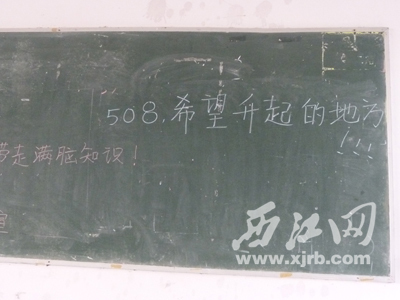 508,希望升起的地方
!!!
带走满脑知识!
西江网
www.xjrb.com